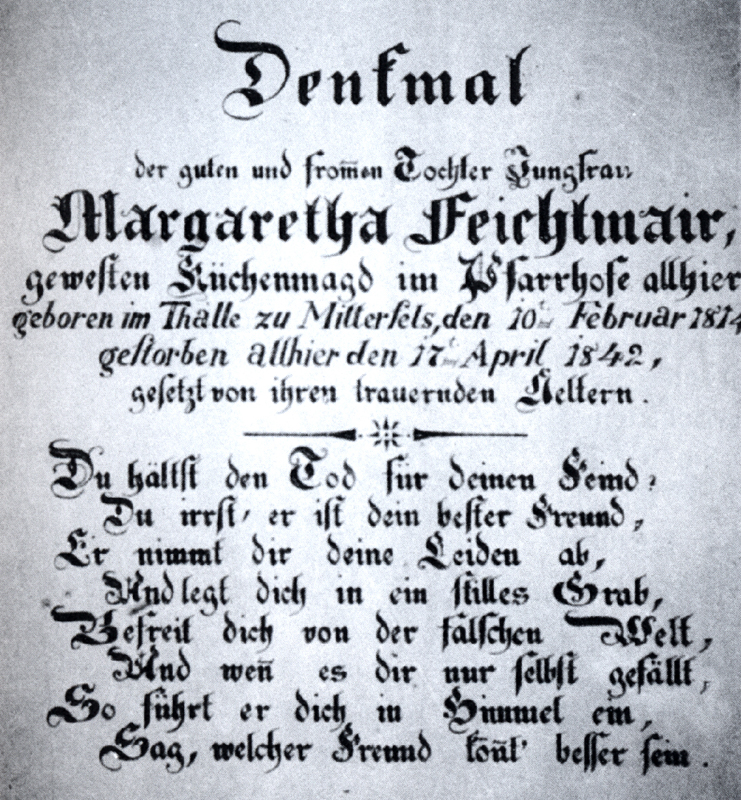 Denkmal
der guten und from̅en Tochter Jungfrau
Margaretha Feichtmair,
gewesten Küchenmagd im Pfarrhofe allhier
geboren im Thälle zu Mitterfels, den 10ᵗ Februar 1814
gestorben allhier den 17ᵗ April 1842,
gesetzt von ihren trauernden Aeltern.
Du hällst den Tod für deinen Feind?
Du irrst, er ist dein bester Freund,
Er nimmt dir deine Leiden ab,
Und legt dich in ein stilles Grab,
Befreit dich von der falschen Welt,
Und wen̅ es dir nur selbst gefällt,
So führt er dich in Himmel ein,
Sag, welcher Freund kön̅t' besser sein.